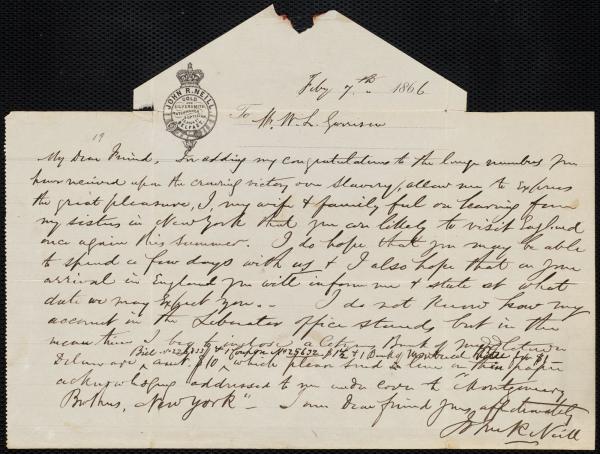 JOHN R. NEILL
GOLD
SILVERSMITH
BELFAST
Feby 7th 1866
To Mr. W. L. Garrison
19
My Dear Friend, In adding my congratulations to the large numbers you
have received upon the crowning victory over Slavery, allow me to Express
the great pleasure, I my wife & family feel on learning from
my sisters in New York that you are likely to visit England
once again this Summer. I do hope that you may be able
to spend a few days with us & I also hope that on your
arrival in England you will inform me & state at what
date we may Expect you. - I do not know how my
account in the Liberator office stands, but in the
mean time I beg to enclose a Citizens Bank of Middletown
Bill No & Coupon No 25632 & 1 Bank of Montreal for $1
Delaware amt. $10, which please send a line on this paper
acknowledging addressed to me under cover to Montgomery
Brothers, New York" - I am Dear friend Yours affectionately
John R. Neill